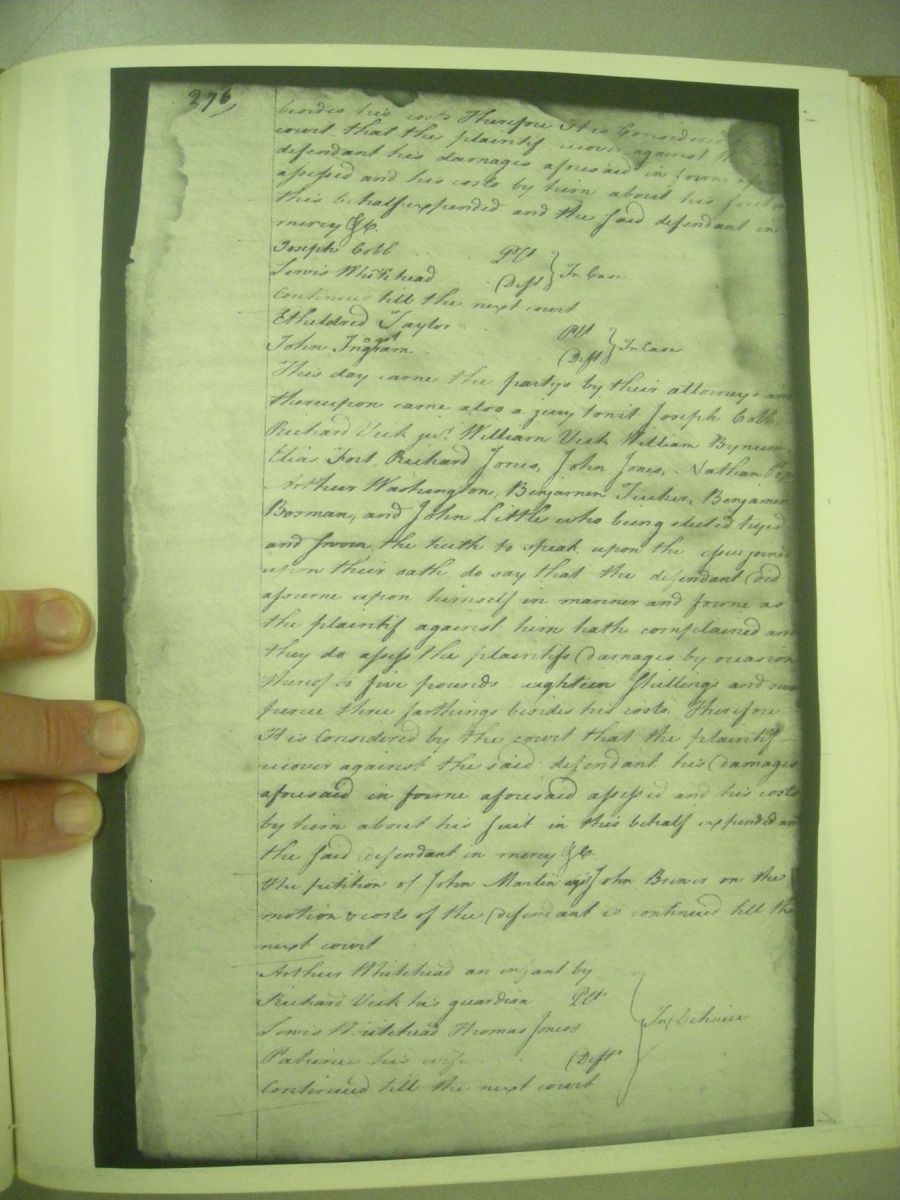 276,
besides his costs Therefore It is Considered
court that the plaintif recover against
defendant his damages aforesaid in forme
assessed and his costs by him about his suit
this behalf expended and the said defendant in
mercy &C.
Joseph Cobb Plt
Lewis Whitehead Deft In Case
Continued till the next court
Etheldred Taylor Plt
agst
John Ingram Deft In Case
This day came the partys by their attorneys and
thereupon came also a jury towit Joseph Cobb
Richard Vick jur. William Vick William Bynum
Elias Fort, Richard Jones, John Jones, Nathan Pope
Arthur Washington, Benjamen Tucker, Benjamen
Bosman, and John Little who being elected tryed
and sworn the truth to speak upon the issue joined
upon their oath do say that the defendant did
assume upon himself in manner and forme as
the plaintif against him hath complained and
they do assess the plaintifs damages by occasion
thereof to five pounds eighteen shillings and
pence three farthings besides his costs Therefore
It is Considered by the court that the plaintif
recover against the said defendant his damages
aforesaid in forme aforesaid assessed and his costs
by him about his suit in this behalf expended and
the said defendant in mercy &C.
the petition of John Martin agst John on the
motion & costs of the defendant is continued till the
next court
Arthur Whitehead an infant by
Richard Vick his guardian Plt
Lewis Whitehead Thomas Jones
his wife Deft In Detinue
Continued till the next court